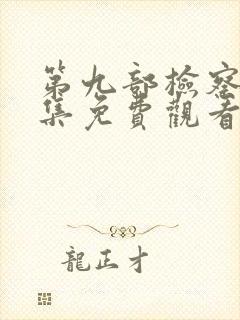 第九部檢察
集免費觀看
龍正才